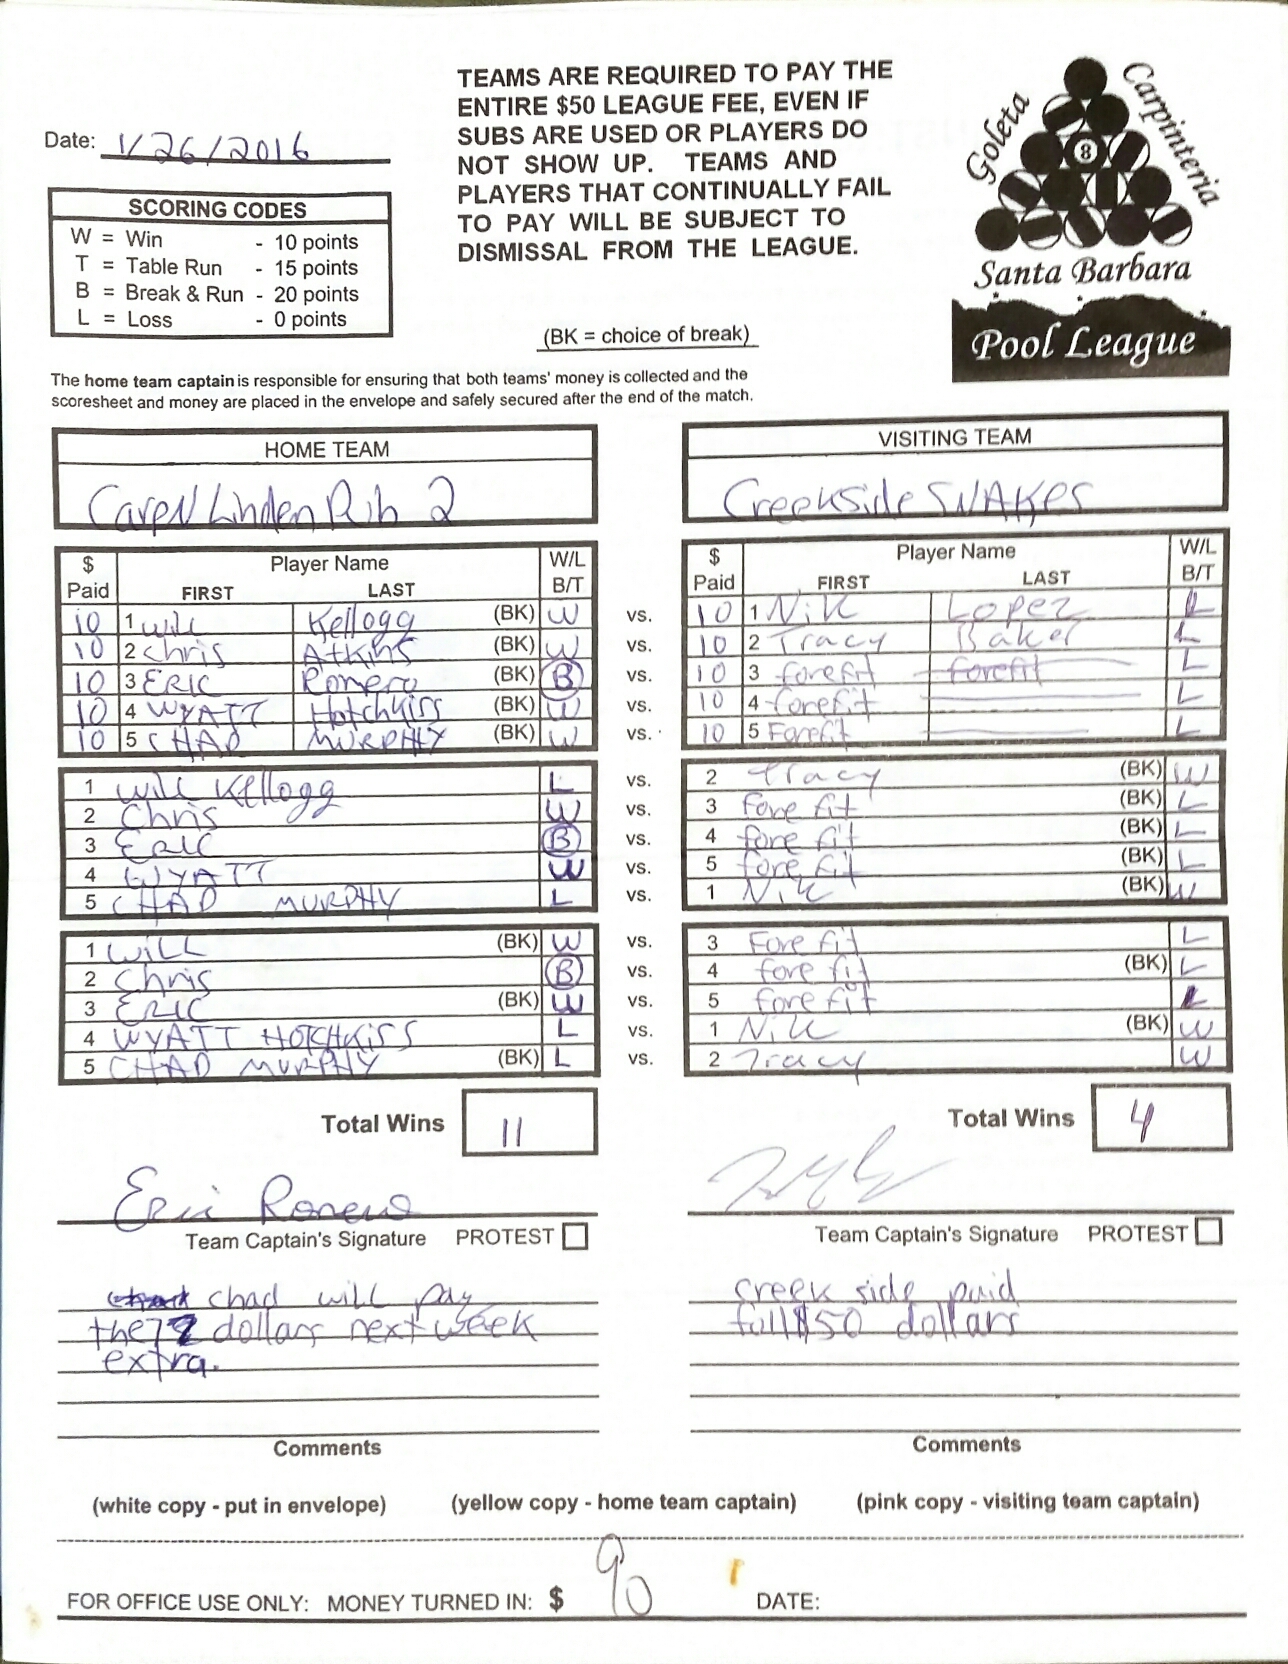 TEAMS ARE REQUIRED TO PAY THE
ENTIRE $50 LEAGUE FEE, EVEN IF
SUBS ARE USED OR PLAYERS DO
NOT SHOW UP. TEAMS AND
PLAYERS THAT CONTINUALLY FAIL
TO PAY WILL BE SUBJECT TO
DISMISSAL FROM THE LEAGUE.
Goleta
Carpinteria
8
Santa Barbara
Pool League
Date: 1/26/2016
SCORING CODES
W = Win - 10 points
T = Table Run - 15 points
B = Break & Run - 20 points
L = Loss - 0 points
(BK = choice of break)
The home team captain is responsible for ensuring that both teams' money is collected and the
scoresheet and money are placed in the envelope and safely secured after the end of the match.
HOME TEAM VISITING TEAM
Linden 2 Creekside SNAKES
$ Paid Player Name FIRST LAST W/L B/T $ Paid Player Name FIRST LAST W/L B/T
10 1 Will Kellogg (BK) W vs. 10 1 Nik Lopez L
10 2 Chris Atkins (BK) W vs. 10 2 Tracy Baker L
10 3 ERIC Romero (BK) B vs. 10 3 forefit forefit L
10 4 WYATT Hotchkiss (BK) W vs. 10 4 forefit L
10 5 CHAD MURPHY (BK) W vs. 10 5 Forefit L
1 Will Kellogg L vs. 2 Tracy (BK) W
2 Chris W vs. 3 Fore fit (BK) L
3 Eric B vs. 4 fore fit (BK) L
4 WYATT W vs. 5 fore fit (BK) L
5 CHAD MURPHY L vs. 1 Nik (BK) W
1 WILL (BK) W vs. 3 Fore fit L
2 Chris B vs. 4 fore fit (BK) L
3 ERIC (BK) W vs. 5 fore fit L
4 WYATT HOTCHKISS L vs. 1 Nik (BK) W
5 CHAD MURPHY (BK) L vs. 2 Tracy W
Total Wins 11 Total Wins 4
Eric Romero
Team Captain's Signature PROTEST Team Captain's Signature PROTEST
chad will pay creek side paid
the dollars next week full $50 dollars
extra.
Comments Comments
(white copy - put in envelope) (yellow copy - home team captain) (pink copy - visiting team captain)
FOR OFFICE USE ONLY: MONEY TURNED IN: $ 90 DATE: